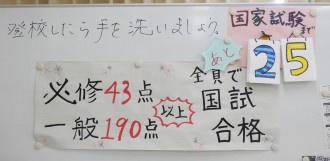 登校したら手を洗いましょう。
国家試験
まで
あと
25
必修43点
一般190点
以上
全員で
国試
合格